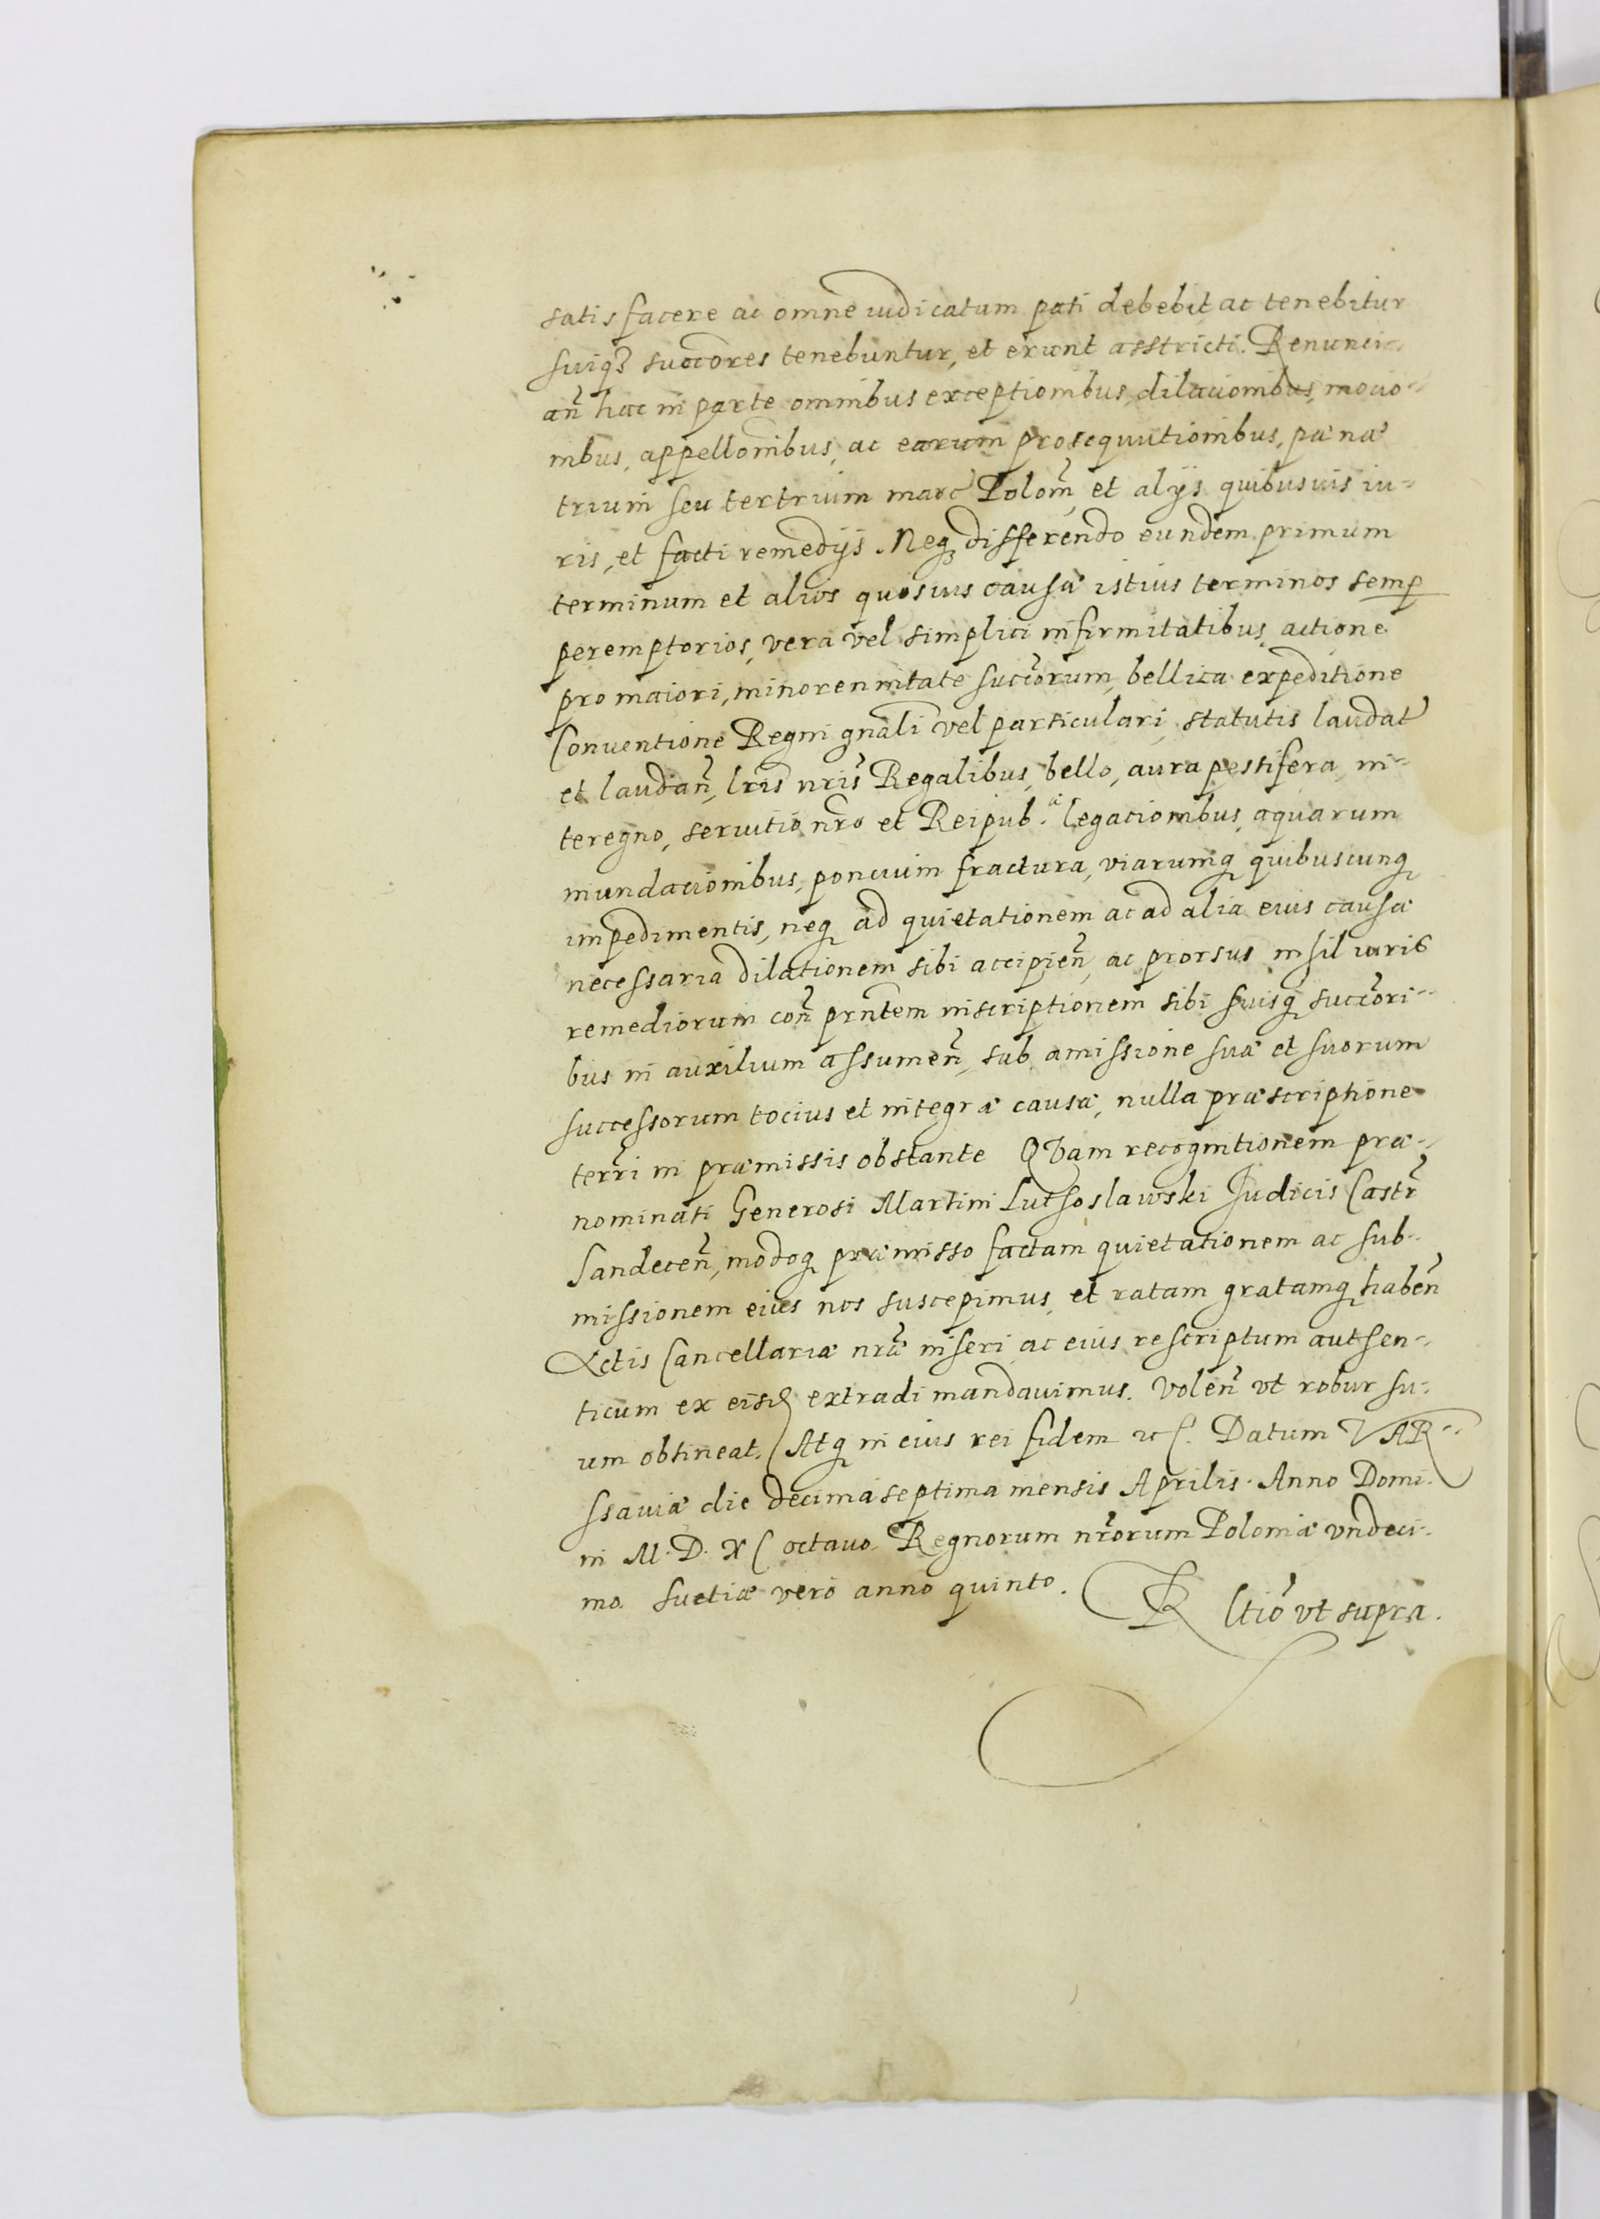 satisfacere ac omne iudicatum pati debebit ac tenebitur
suiq̃ succores tenebuntur, et erunt asstricti. Renuncia-
añ hac in parte omnibus exceptionibus, dilacionibus, mocio-
nibus, appellonibus, ac earum prosequutionibus, pæna
trium seu tertrium marc̃ Polom̃ et alijs quibusuis iu-
ris, et facti remedijs. Neq; differendo eundem primum
terminum et alios quosuis causæ istius terminos semp
peremptorios, vera vel simplici infirmitatibus, actione
pro maiori, minorennitate succõrum, bellica expeditione
Conuentione Regni gnãli vel particulari, statutis laudat̃
et laudañ, lrĩs nrĩs Regalibus, bello, aura pestifera, in-
teregno, seruitio nrõ et Reipub.æ legationibus, aquarum
inundacionibus, poncium fractura, viarumq; quibuscunq;
impedimentis, neq; ad quietationem ac ad alia eius causæ
necessaria dilationem sibi accipieñ, ac prorsus nihil iuris
remediorum coñ prñtem inscriptionem sibi suisq; succõri-
bus in auxilium assumeñ, sub amissione suæ et suorum
successorum tocius et integræ causæ, nulla præscriptione
terrĩ in præmissis obstante QVam recognitionem præ-
nominati Generosi Martini Luthoslawski Judicis Castr̃
Sandeceñ, modoq; præmisso factam quietationem ac sub-
missionem eius nos suscepimus, et ratam gratamq; habeñ
Actis Cancellariæ nræ̃ inseri, ac eius rescriptum authen-
ticum ex eisd extradi mandauimus. Voleñ vt robur su-
um obtineat. Atq; in eius rei fidem etc. Datum VAR-
ssauiæ die decimaseptima mensis Aprilis. Anno Domi-
ni M. D. XC octauo. Regnorum nrõrum Poloniæ vndeci-
mo. Suetiæ vero anno quinto. R Ctiõ vt supra.